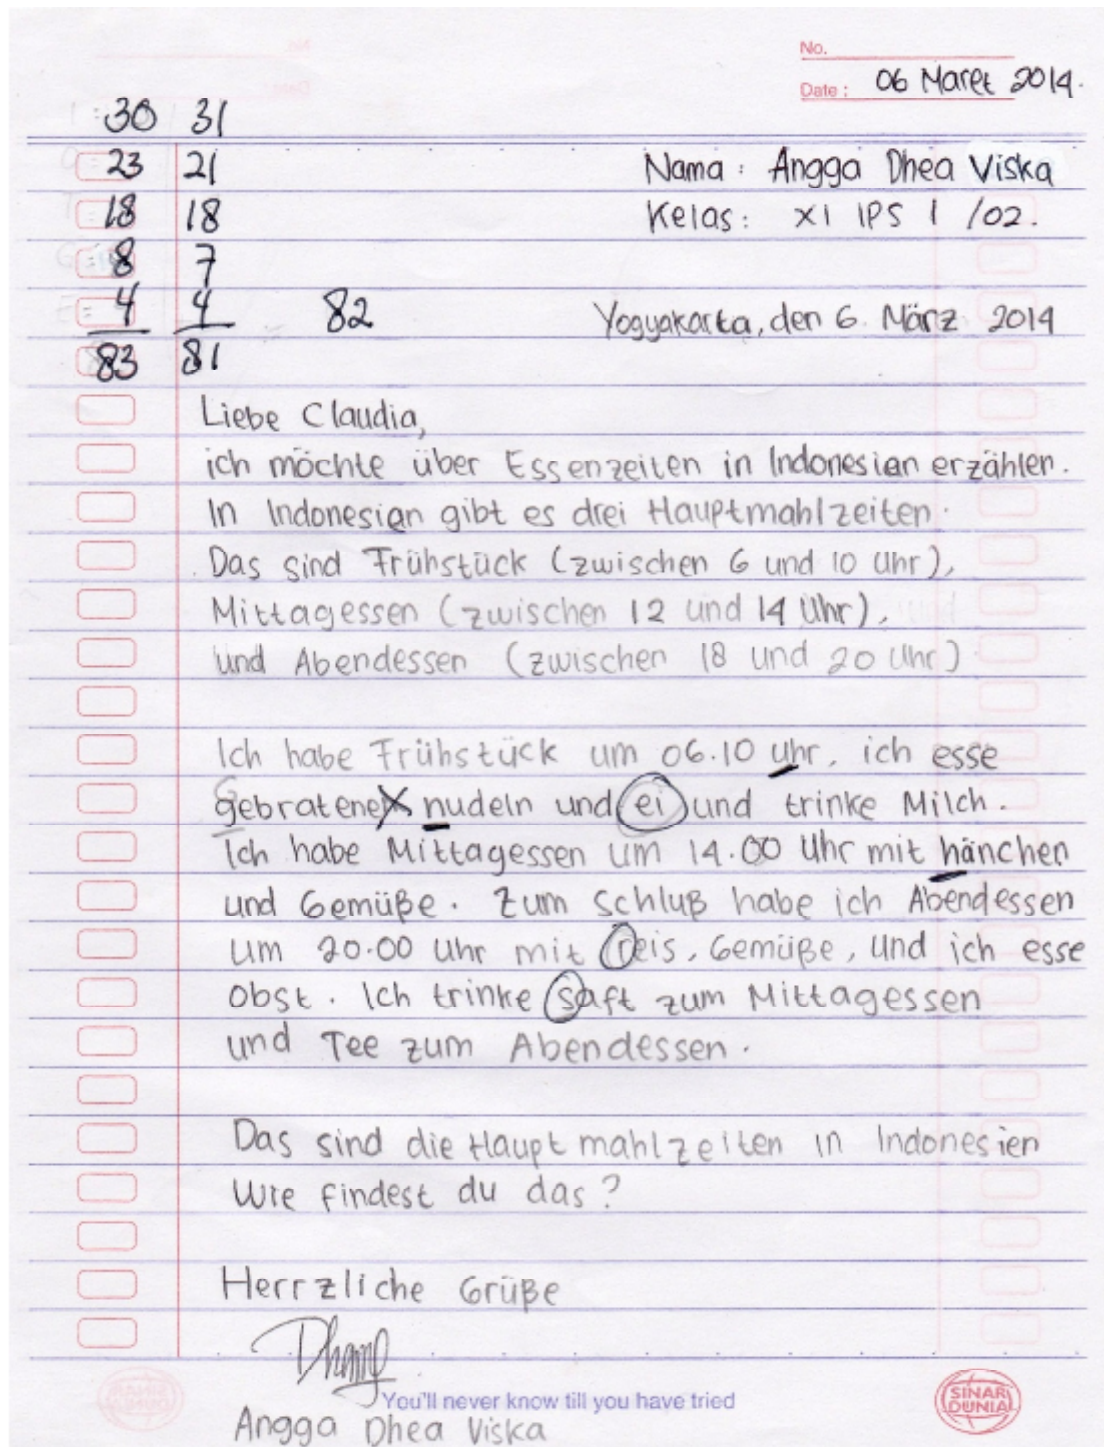 No.
Date : 06 Maret 2014.
30 31
23 21
18 18
8 7
4 4 82
83 81
Nama : Angga Dhea Viska
Kelas : XI IPS 1 /02.
Yogyakarta, den 6. März 2014
Liebe Claudia,
ich möchte über Essenzeiten in Indonesian erzählen.
In Indonesian gibt es drei Hauptmahlzeiten.
Das sind Frühstück (zwischen 6 und 10 Uhr),
Mittagessen (zwischen 12 und 14 Uhr),
und Abendessen (zwischen 18 und 20 Uhr)
Ich habe Frühstück um 06.10 uhr, ich esse
gebratene nudeln und ei und trinke Milch.
Ich habe Mittagessen um 14.00 Uhr mit hänchen
und Gemüße. Zum schluß habe ich Abendessen
um 20.00 Uhr mit reis, Gemüße, und ich esse
Obst. Ich trinke saft zum Mittagessen
und Tee zum Abendessen.
Das sind die Haupt mahlzeiten in Indonesien
Wie findest du das?
Herrzliche Grüße
You'll never know till you have tried
SINAR DUNIA
Angga Dhea Viska